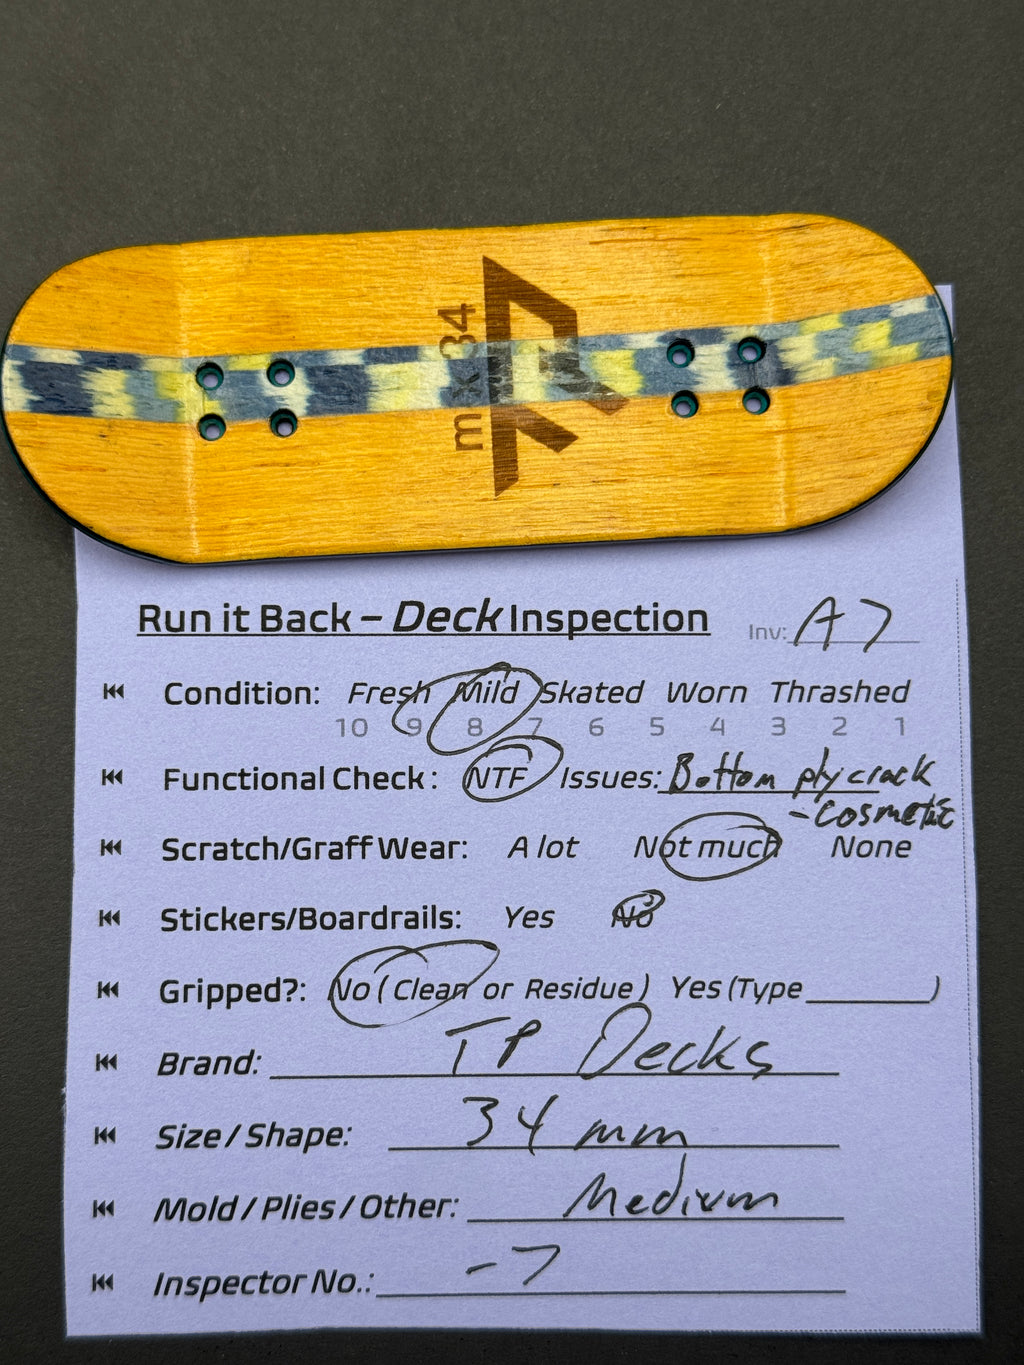 m x 34
Run it Back – Deck Inspection Inv: A7
Condition: Fresh Mild Skated Worn Thrashed
10 9 8 7 6 5 4 3 2 1
Functional Check: NTF Issues: Bottom ply crack
- cosmetic
Scratch/Graff Wear: A lot Not much None
Stickers/Boardrails: Yes No
Gripped?: No (Clean or Residue) Yes (Type )
Brand: TP Decks
Size / Shape: 34 mm
Mold / Plies / Other: Medium
Inspector No.: -7